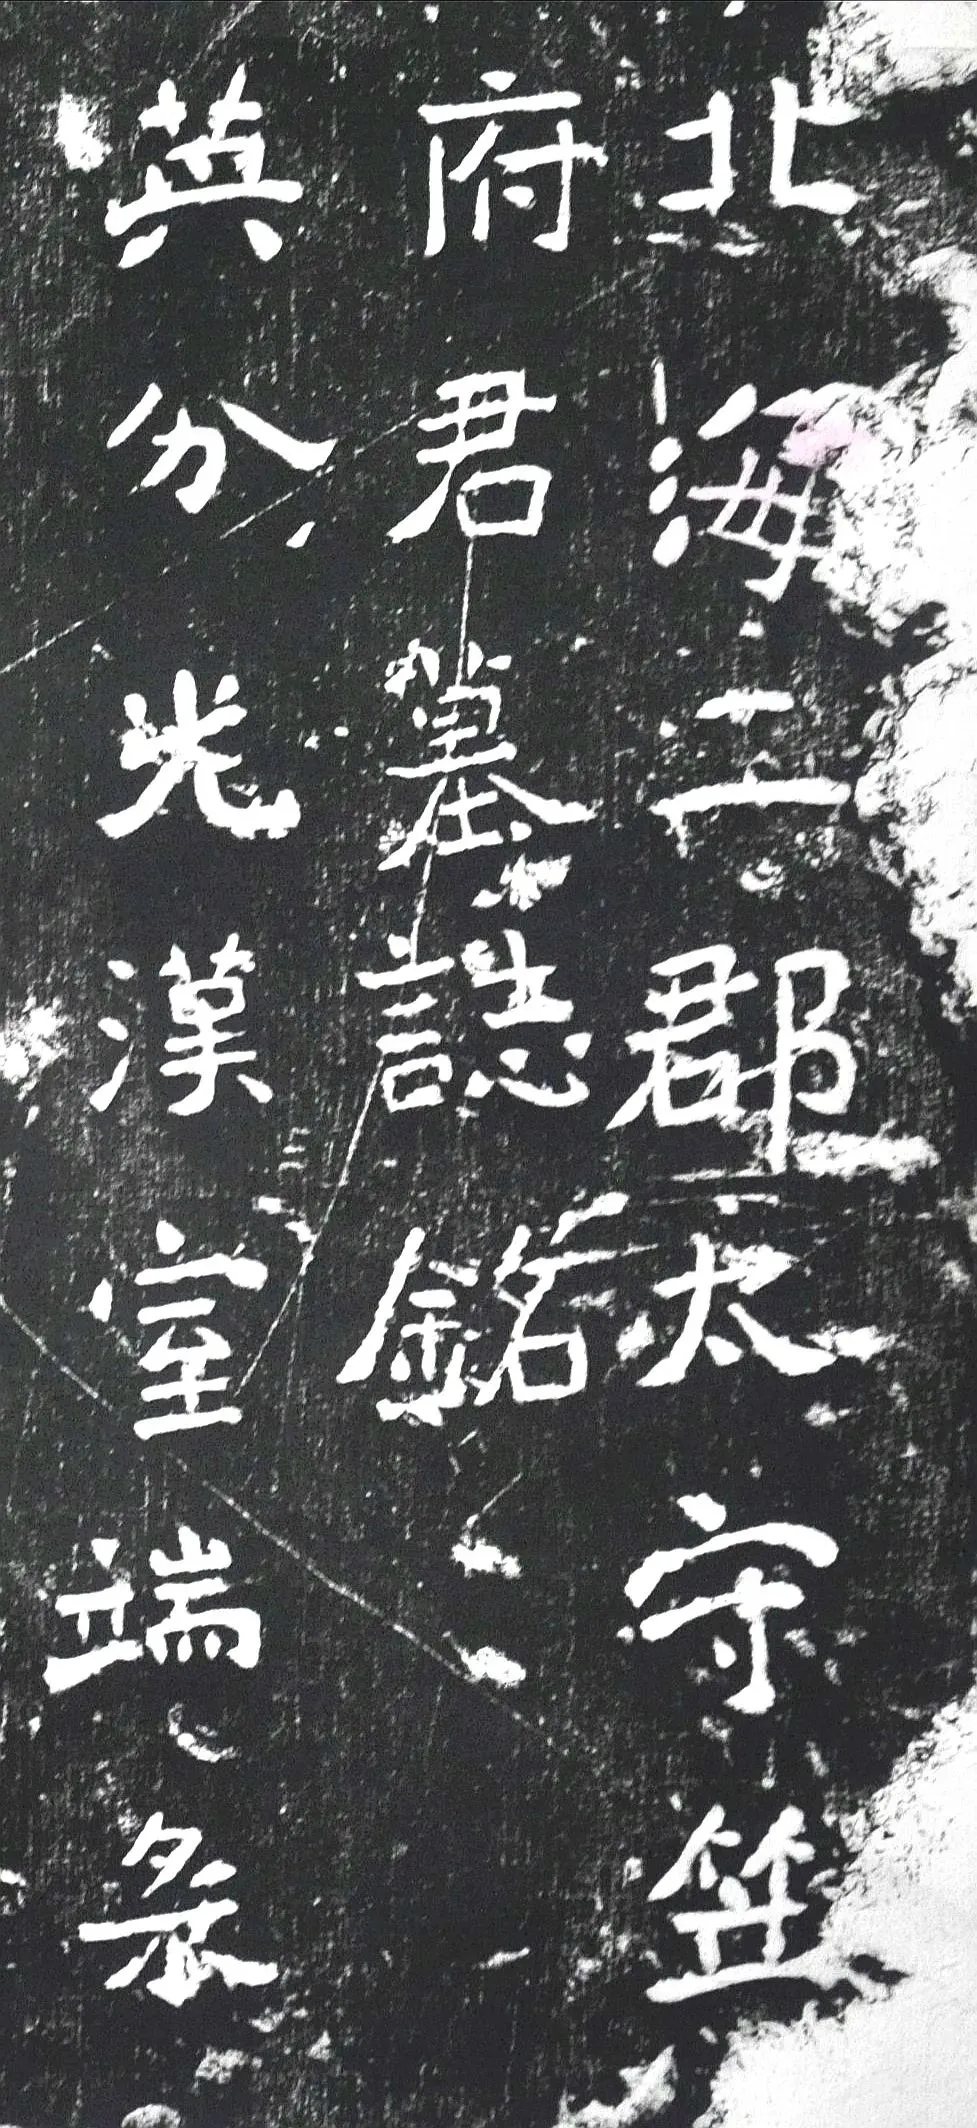 北海二郡太守笠
府君墓誌銘
英分光漢室端彔